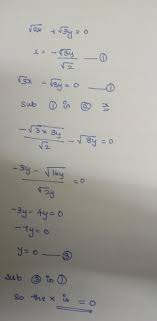 √2x + √3y = 0
x = -√3y / √2 — ①
√3x - √8y = 0 — ①
sub ① in ②
-√3 × 3y / √2 - √8y = 0
-3y - √16y / √2y = 0
-3y - 4y = 0
-7y = 0
y = 0 — ③
sub ③ in ①
so the x is = 0